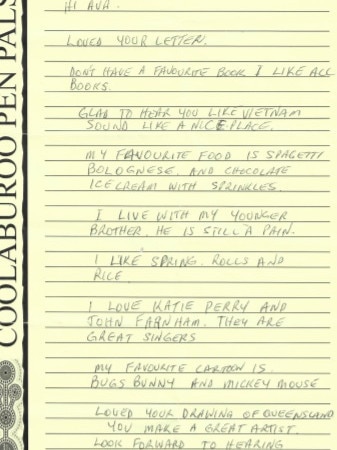 COOLABUROO PEN PALS
HI AVA.
LOVED YOUR LETTER.
DON'T HAVE A FAVOURITE BOOK I LIKE ALL
BOOKS.
GLAD TO HEAR YOU LIKE VIETNAM
SOUND LIKE A NICE PLACE.
MY FAVOURITE FOOD IS SPAGETTI
BOLOGNESE. AND CHOCOLATE
ICECREAM WITH SPRINKLES.
I LIVE WITH MY YOUNGER
BROTHER. HE IS STILL A PAIN.
I LIKE SPRING. ROLLS AND
RICE
I LOVE KATIE PERRY AND
JOHN FARNHAM. THEY ARE
GREAT SINGERS
MY FAVOURITE CARTOON IS.
BUGS BUNNY AND MICKEY MOUSE
LOVED YOUR DRAWING OF QUEENSLAND
YOU MAKE A GREAT ARTIST.
LOOK FORWARD TO HEARING